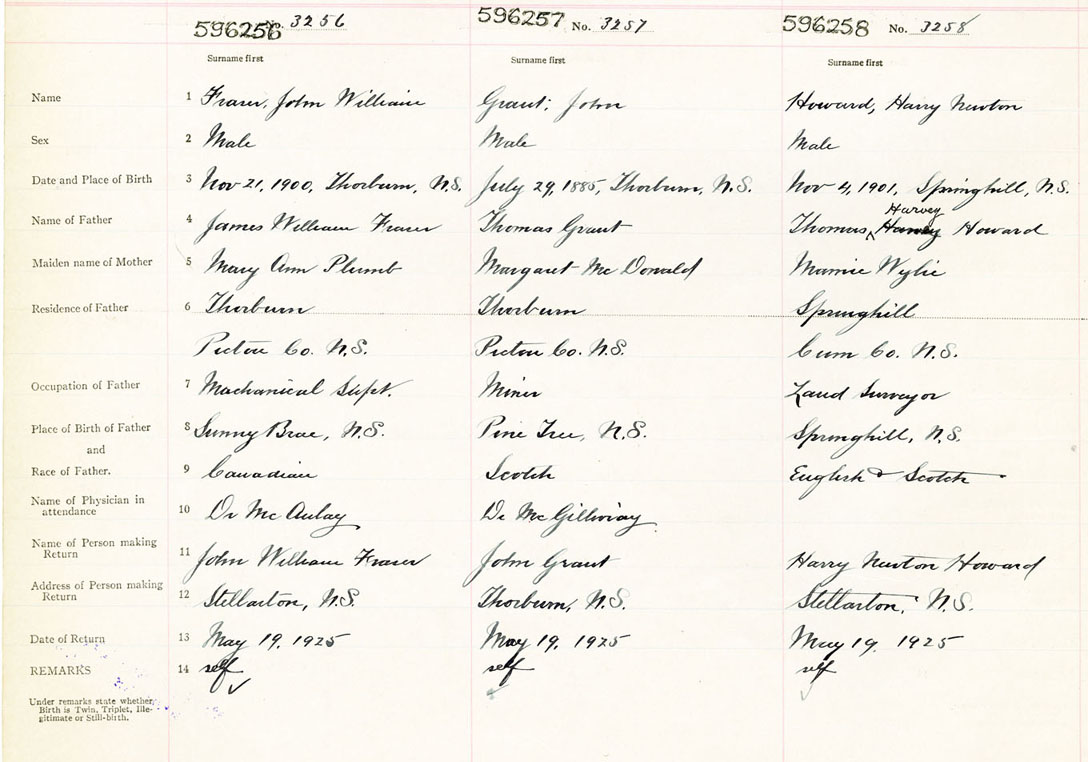 596256 No. 3256 596257 No. 3257 596258 No. 3258
Surname first Surname first Surname first
Name 1 Fraser, John William Grant, John Howard, Harry Newton
Sex 2 Male Male Male
Date and Place of Birth 3 Nov 21, 1900, Thorburn, N.S. July 29, 1885, Thorburn, N.S. Nov 4, 1901, Springhill, N.S.
Harvey
Name of Father 4 James William Fraser Thomas Grant Thomas Howard
Maiden name of Mother 5 Mary Ann Plumb Margaret Mc Donald Mamie Wylie
Residence of Father 6 Thorburn Thorburn Springhill
Pictou Co. N.S. Pictou Co. N.S. Cum Co. N.S.
Occupation of Father 7 Machanical Supt. Miner Land Surveyor
Place of Birth of Father 8 Sunny Brae, N.S. Pine Tree, N.S. Springhill, N.S.
and
Race of Father. 9 Canadian Scotch English & Scotch
Name of Physician in
attendance 10 Dr Mc Aulay Dr Mc Gillivray
Name of Person making
Return 11 John William Fraser John Grant Harry Newton Howard
Address of Person making
Return 12 Stellarton, N.S. Thorburn, N.S. Stellarton, N.S.
Date of Return 13 May 19, 1925 May 19, 1925 May 19, 1925
REMARKS 14 self self self
Under remarks state whether
Birth is Twin, Triplet, Ille-
gitimate or Still-birth.